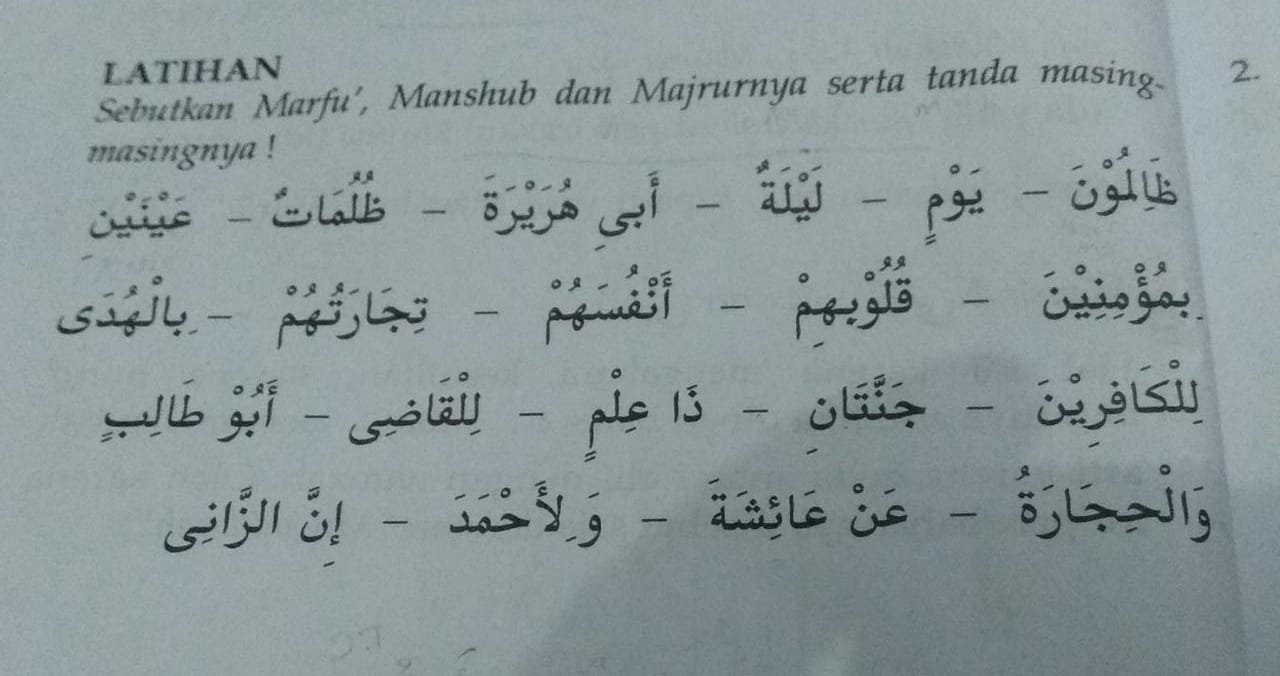 LATIHAN
Sebutkan Marfu', Manshub dan Majrurnya serta tanda masing-
masingnya !
2.
ظَالِمُوْنَ – يَوْمٍ – لَيْلَةٌ – أَبِي هُرَيْرَةَ – ظُلُمَاتٌ – عَيْنَيْنِ
بِمُؤْمِنِيْنَ – قُلُوْبِهِمْ – أَنْفُسَهُمْ – تِجَارَتُهُمْ – بِالْهُدَى
لِلْكَافِرِيْنَ – جَنَّتَانِ – ذَا عِلْمٍ – لِلْقَاضِى – أَبُوْ طَالِبٍ
وَالْحِجَارَةُ – عَنْ عَائِشَةَ – وَ لِأَحْمَدَ – إِنَّ الزَّانِى